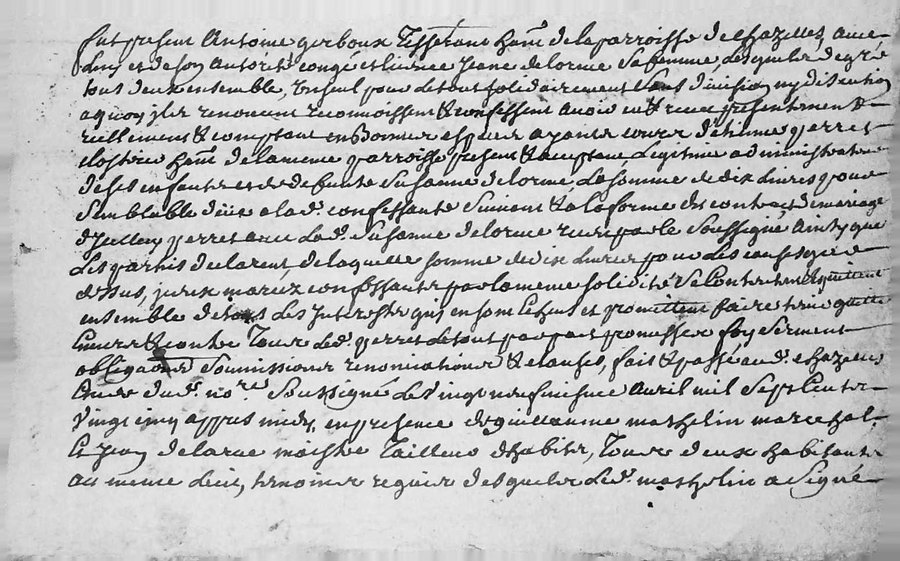 fut present Antoine gerboux Tisserant ham de la parroisse de chazelles, avec
luy et de son autorité congé et licence Jeane delorme sa femme lesquels de gré
tous deux ensemble, un seul pour le tout solidairement sans division ny discution
a quoy ils renoncent reconnoissent & confessent avoir eu & receu presentement
reellement & comptant en bonnes especes ayants cours d'etienne perret
clostre ham de la meme parroisse present & acceptant, legitime administrateur
de ses enfants et de defunte Susanne delorme, la somme de dix livres pour
semblable deüe a lad. confessante suivant & a la forme du contract de mariage
d' perret avec lad. Susanne delorme receu par le soussigné ainsy que
les parties declarent, de laquelle somme de dix livres pour les causes que
dessus, iceux mariez confessants par la meme solidité se contentent & quittent
ensemble de tous les interests qui en sont echus et promettent faire tenir quitte
envers & contre Tous led. perret le tout par pact promesses foy serment
obligations soumissions renonciations & clauses, fait & passé aud. chazelles
etude dud. no.re soussigné le vingt neufvieme avril mil sept cents
vingt cinq appres midy, en presence de guillaume mathelin marechal
& Jean delarue maistre Tailleur d'habits, Tous deux habitants
au meme lieu, temoins requis desquels led. mathelin a signé